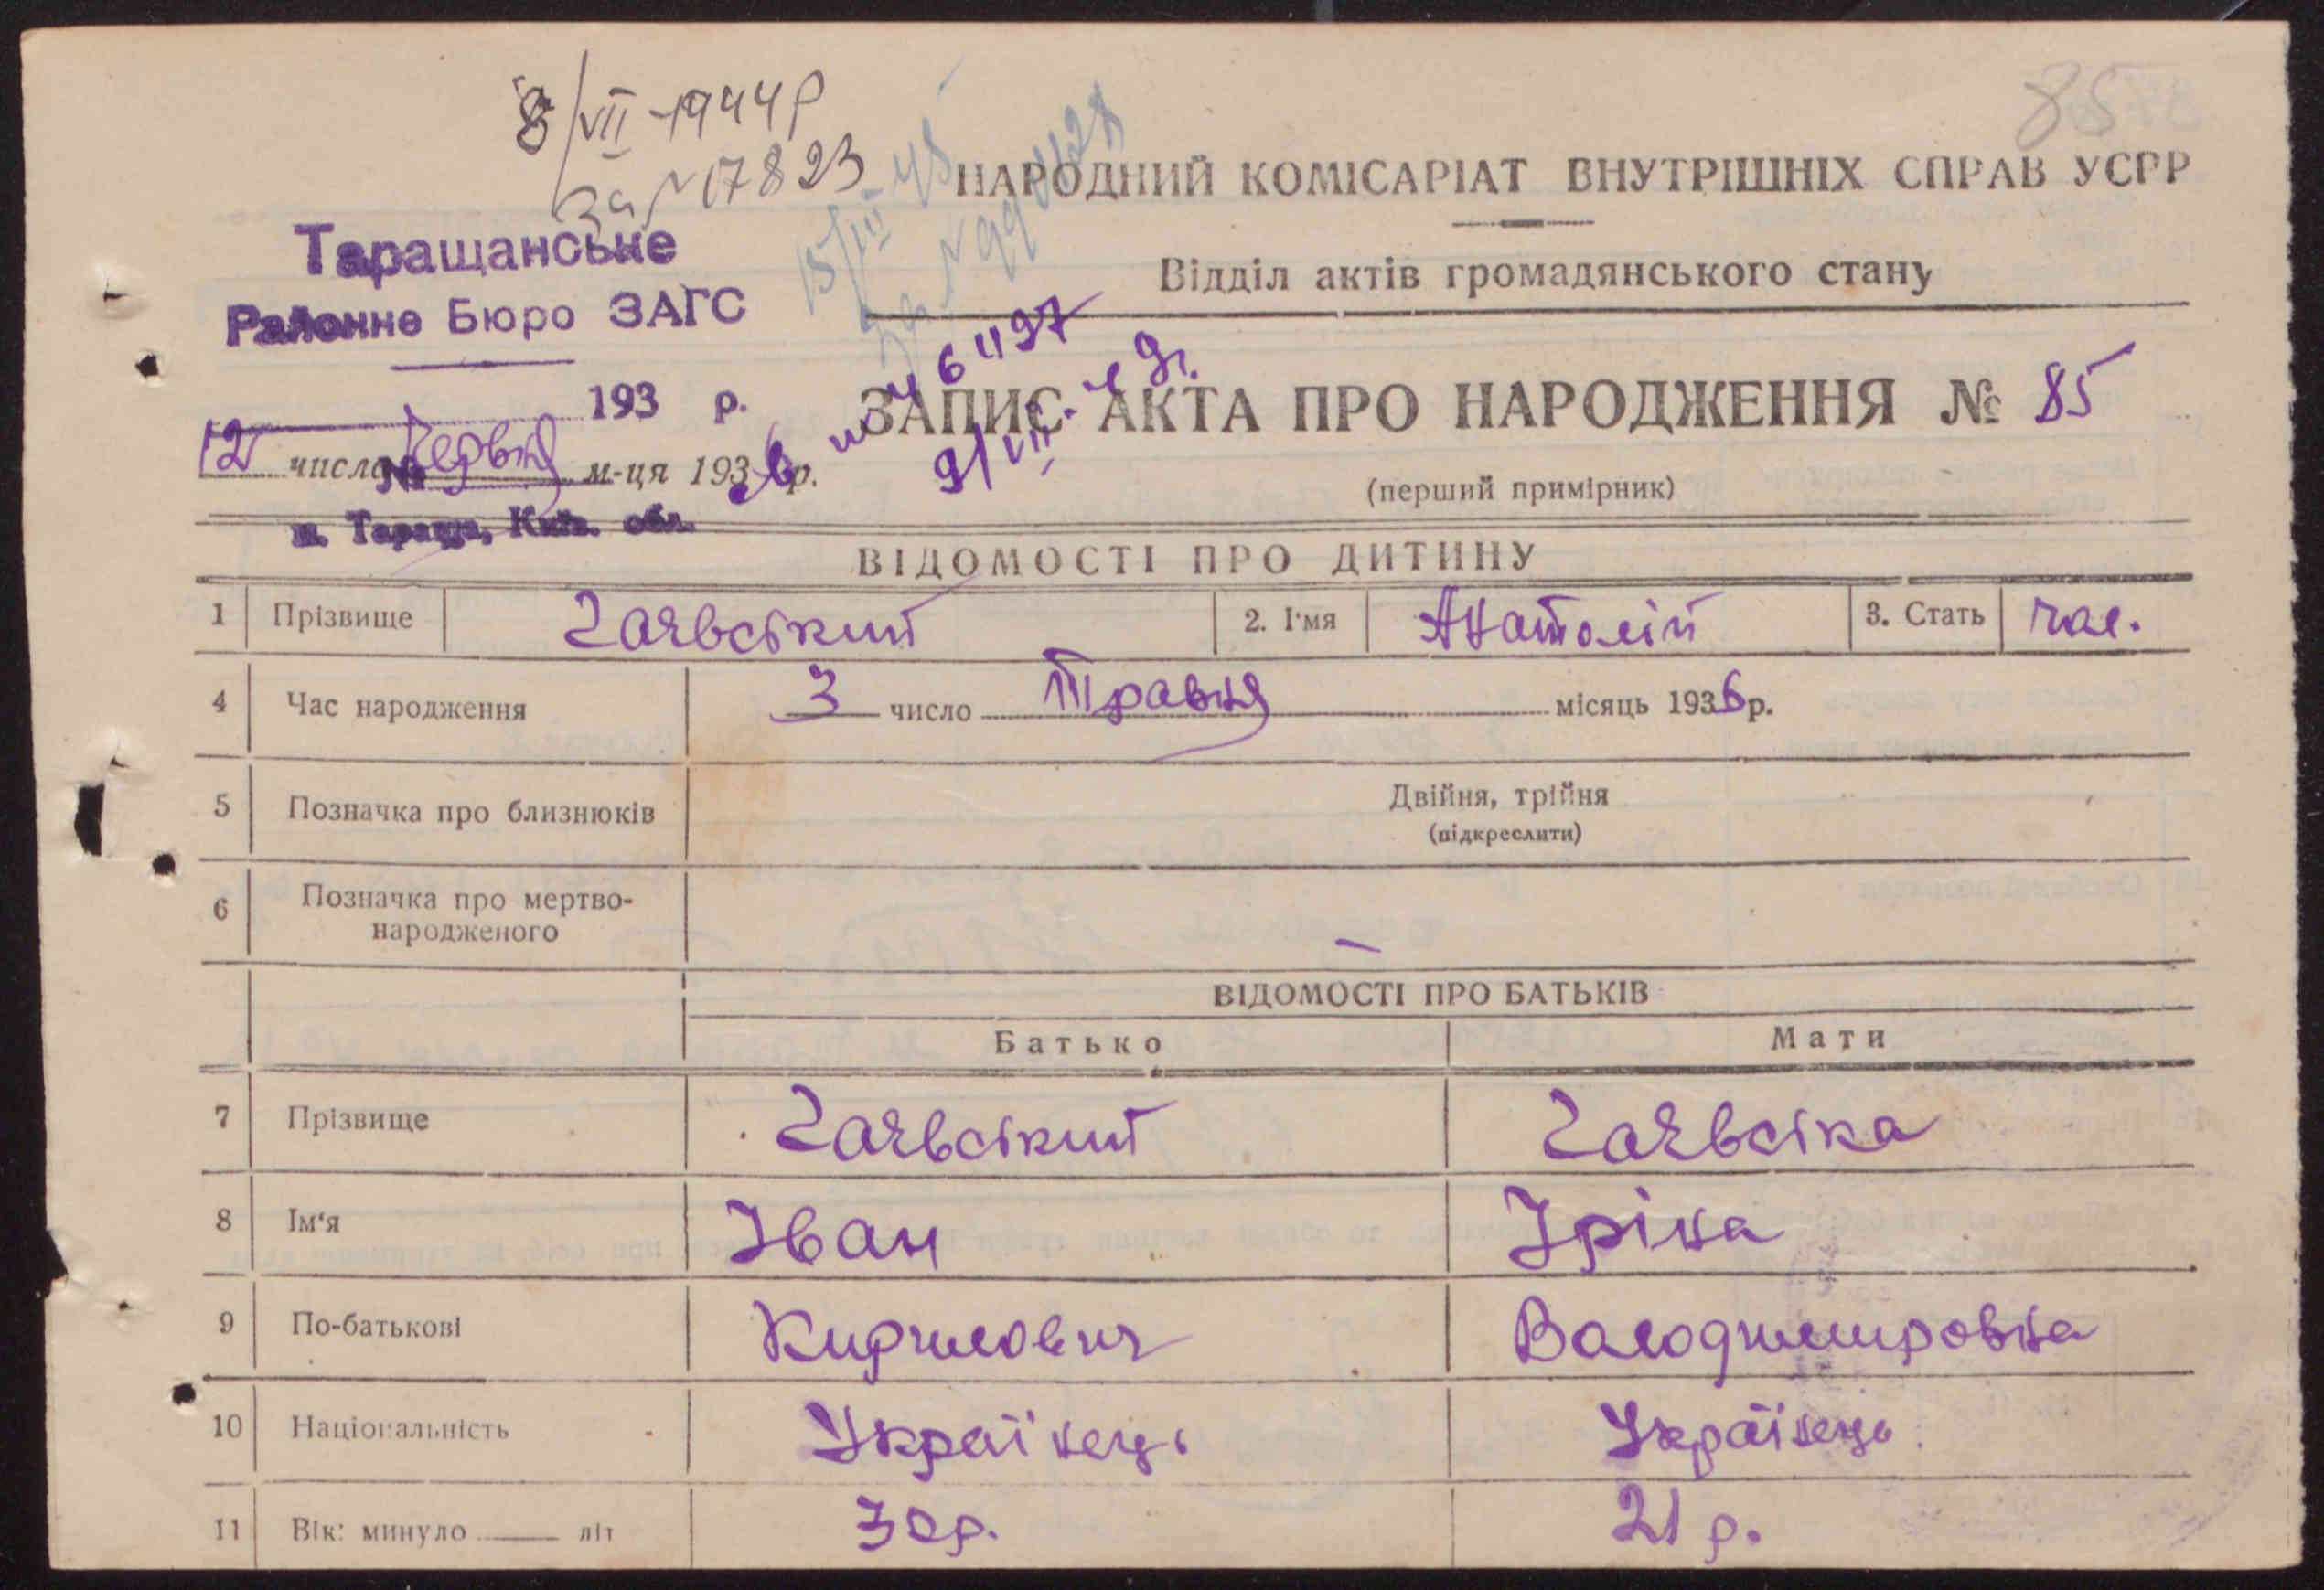 8/VII-1944р
за №7823
85
НАРОДНИЙ КОМІСАРІАТ ВНУТРІШНІХ СПРАВ УСРР
Таращанське
Районне Бюро ЗАГС
15/III 45
за №
Відділ актів громадянського стану
193 р.
9/VII.
ЗАПИС АКТА ПРО НАРОДЖЕННЯ № 85
12 числа Червня м-ця 1936 р.
№
(перший примірник)
м. Тараща, Київ. обл.
ВІДОМОСТІ ПРО ДИТИНУ
1 Прізвище Гаявський 2. І'мя Анатолій 3. Стать чол.
4 Час народження 3 число Травня місяць 1936 р.
5 Позначка про близнюків Двійня, трійня
(підкреслити)
6 Позначка про мертво-
народженого —
ВІДОМОСТІ ПРО БАТЬКІВ
Батько Мати
7 Прізвище Гаявський Гаявська
8 Ім'я Іван Іріна
9 По-батькові Кирилович Володимировна
10 Національність Українець Українець
11 Вік: минуло ___ літ 30 р. 21 р.